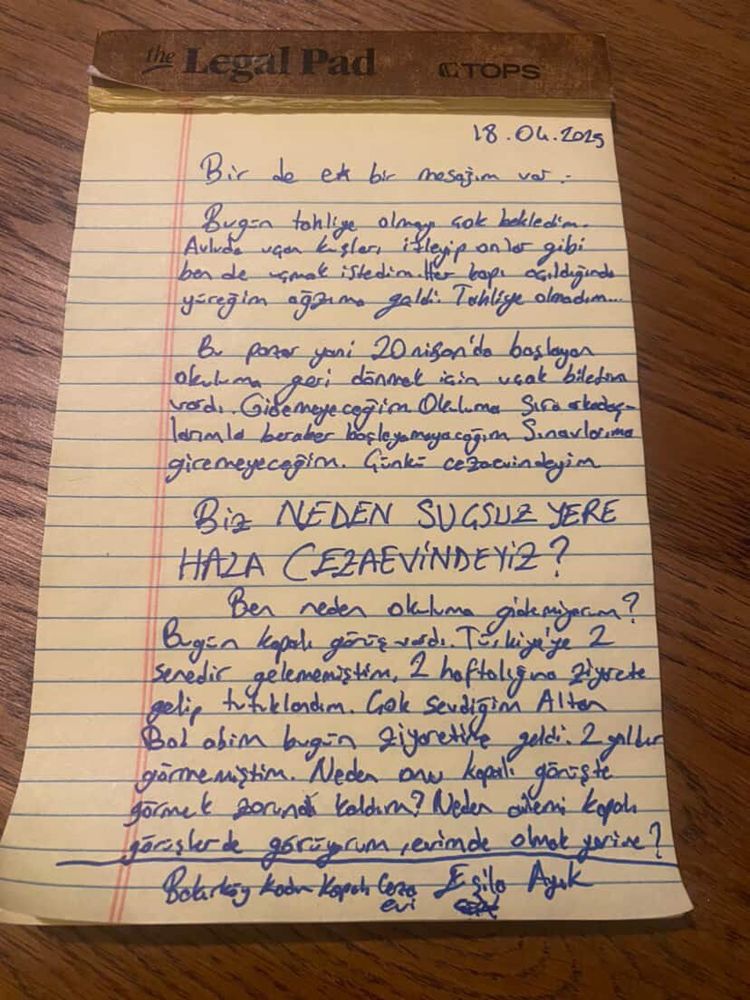 the Legal Pad TOPS
18.04.2025
Bir de ek bir mesajım var.
Bugün tahliye olmayı çok bekledim.
Avluda uçan kuşları izleyip onlar gibi
ben de uçmak istedim. Her kapı açıldığında
yüreğim ağzıma geldi. Tahliye olmadım...
Bu pazar yani 20 nisan'da başlayan
okuluma geri dönmek için uçak biletim
vardı. Gidemeyeceğim Okuluma Sıra arkadaş-
larımla beraber başlayamayacağım Sınavlarıma
giremeyeceğim. Çünkü cezaevindeyim
Biz NEDEN SUÇSUZ YERE
HALA CEZAEVİNDEYİZ?
Ben neden okuluma gidemiyorum?
Bugün kapalı görüş vardı. Türkiye'ye 2
senedir gelememiştim, 2 haftalığına ziyarete
gelip tutuklandım. Çok sevdiğim Altan
Bal abim bugün ziyaretime geldi. 2 yıldır
görmemiştim. Neden onu kapalı görüşte
görmek zorunda kaldım? Neden ailemi kapalı
görüşlerde görüyorum, evimde olmak yerine?
Bakırköy Kadın Kapalı Ceza Esila Ayık
evi